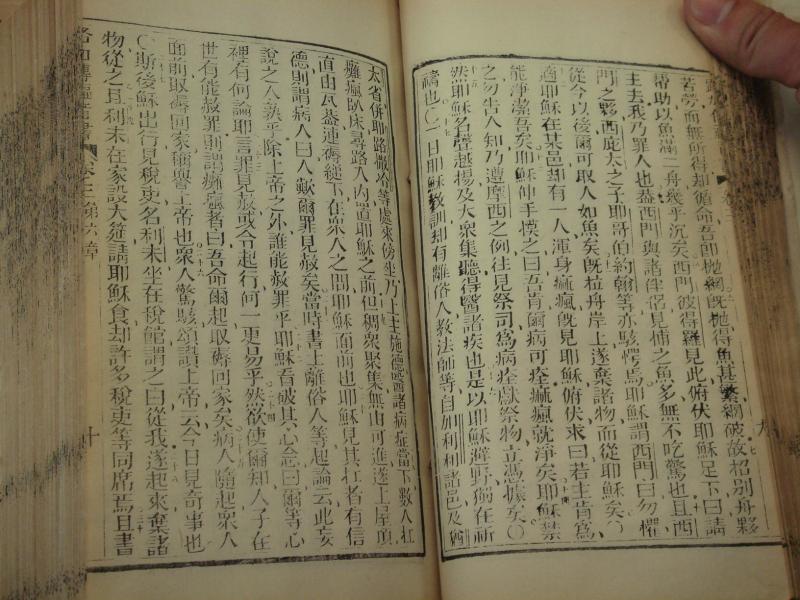 九
若勞而無所得却循命吾即拋網旣拋得魚甚繁網破故招別舟夥
幇助以魚滿二舟幾乎沉矣西門彼得羅見此俯伏耶穌足下曰請
主去我乃罪人也蓋西門與諸伴侶見捕之魚多無不吃驚也且西
門之夥西庇太之子耶哥伯約翰等亦駭愕焉耶穌謂西門曰勿懼
從今以後爾可取人如魚矣旣拉舟岸上遂棄諸物而從耶穌矣〇
適耶穌在某邑却有一人渾身癩瘋旣見耶穌俯伏求曰若主肯爲
能淨潔吾矣耶穌伸手摸之曰吾肯爾病可痊癩瘋就淨矣耶穌禁
之勿告人知乃遵摩西之例往見祭司爲病痊獻祭物立憑據矣〇
然耶穌名聲越揚及大衆集聽得醫諸疾也是以耶穌避野獨在祈
禱也〇一日耶穌敎訓却有離俗人敎法師等自加利利諸邑及猶
太省併耶路撒冷等處來傍坐乃上主施德醫諸病症當下數人扛
癱瘋臥床尋路入內置耶穌之前但稠衆聚集無由可進遂上屋頂
直由瓦蓋連磚縋下在衆人之間耶穌面前也耶穌見其扛者有信
德則謂病人曰人歟爾罪見赦矣當時書士離俗人等起論云此妄
說之人孰乎除上帝之外誰能赦罪乎耶穌看破其心念曰爾等心
裡有何論耶言罪見赦或令起行何一更易乎然欲使爾知人子在
世有能赦罪則謂癱瘋者曰吾命爾起取褥回家矣病人隨起衆人
面前取褥回家稱譽上帝也衆人驚駭頌讚上帝云今日見奇事也
〇斯後穌出行見稅吏名利未坐在稅館謂之曰從我遂起來棄諸
物從之且利未在家設大筵請耶穌食却許多稅吏等同席焉且書
路加傳福音書 卷三第六章 十